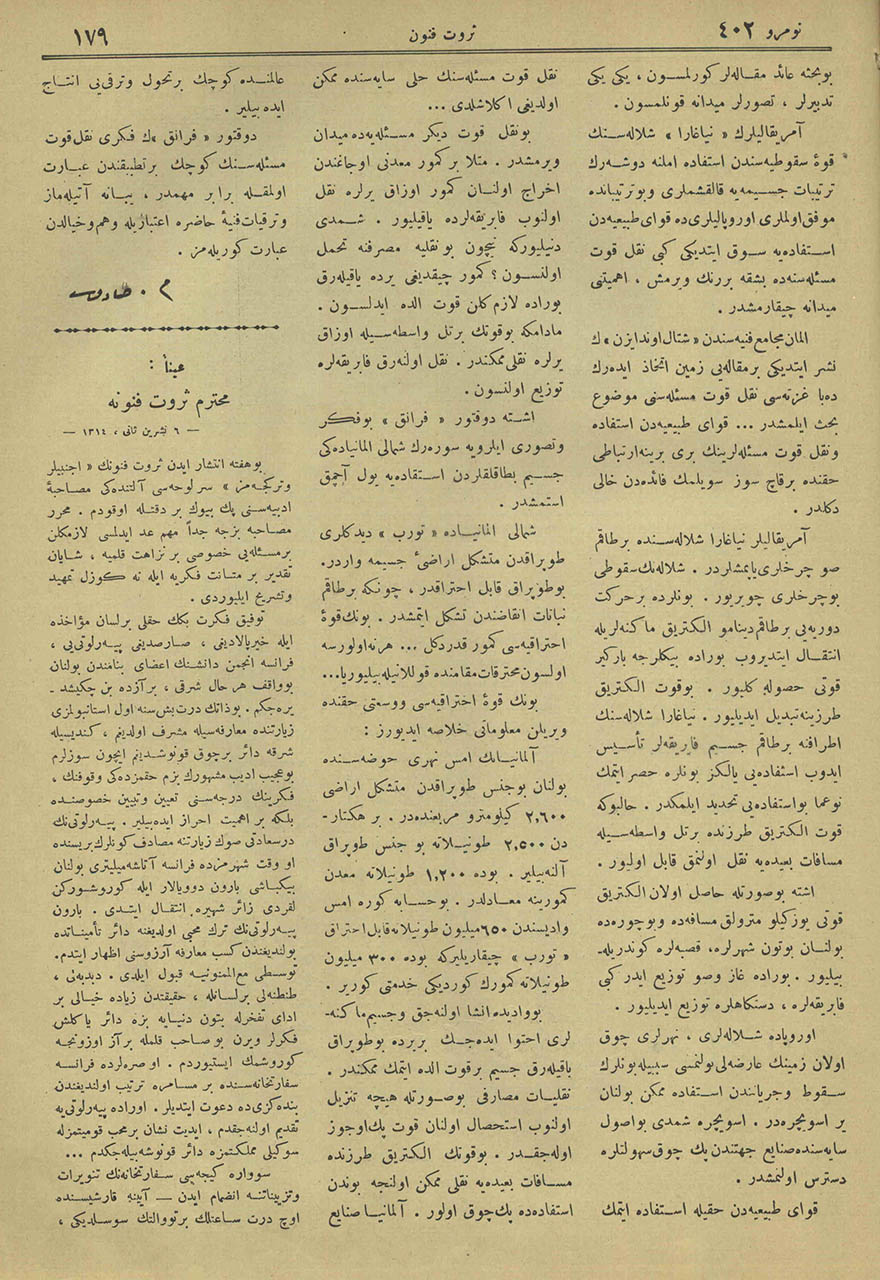 نومرو ٤٠٢
ثروت فنون
١٧٩
بوبحثه عائد مقاله‌لر كورلمسون ، يكی يكی
تدبيرلر ، تصورلر ميدانه قونلمسون .
آمريقاليلرك « نياغارا » شلاله‌سنك
قوۀ سقوطيه‌سندن استفاده املنه دوشه‌رك
ترتيبات جسيمه‌يه قالقشملری وبوترتيباتده
موفق اولملری اوروپاليلری‌ده قوای طبيعيه‌دن
استفاده‌يه سوق ايتديكی كبی نقل قوت
مسئله‌سنه‌ده بشقه بررنك ويرمش ، اهميتنی
ميدانه چيقارمشدر .
المان مجامع فنيه‌سندن « شتال اوندايزن »ك
نشر ايتديكی برمقاله‌يی زمين اتخاذ ايده‌رك
ده‌با غزته‌سی نقل قوت مسئله‌سنی موضوع
بحث ايلمشدر ... قوای طبيعيه‌دن استفاده
ونقل قوت مسئله‌لرينك بری برينه ارتباطی
حقنده برقاچ سوز سويلمك فائده‌دن خالی
دكلدر .
آمريقاليلر نياغارا شلاله‌سنده برطاقم
صو چرخلری ياپمشلردر . شلاله‌نك سقوطی
بوچرخلری چويريور . بونلرده برحركت
دوريه‌يی برطاقم دينامو الكتريق ماكنه‌لريله
انتقال ايتديروب بوراده بيكلرجه باركير
قوتی حصوله كليور . بوقوت الكتريق
طرزينه تبديل ايديليور . نياغارا شلاله‌سنك
اطرافنه برطاقم جسيم فابريقه‌لر تأسيس
ايدوب استفاده‌يی يالكز بونلره حصر ايتمك
نوعما بواستفاده‌يی تحديد ايلمكدر . حالبوكه
قوت الكتريق طرزنده برتل واسطه‌سيله
مسافات بعيده‌يه نقل اولنمق قابل اوليور .
اشته بوصورتله حاصل اولان الكتريق
قوتی يوزكيلو مترولق مسافه‌ده وبوچوره‌ده
بولنان بوتون شهرلره، قصبه‌لره كوندريله‌ـ
بيليور . بوراده غاز وصو توزيع ايدر كبی
فابريقه‌لره ، دستكاهلره توزيع ايديليور .
اوروپاده شلاله‌لری ، نهرلری چوق
اولان زمينك عارضه‌لی بولنمسی سببيله بونلرك
سقوط وجرياندن استفاده ممكن بولنان
ير اسويچره‌در . اسويچره شمدی بواصول
سايه‌سنده صنايع جهتندن پك چوق سهولتلره
دسترس اولنمشدر .
قوای طبيعيه‌دن حقيله استفاده ايتمك
نقل قوت مسئله‌سنك حلی سايه‌سنده ممكن
اولديغی اكلاشلدی ...
بونقل قوت ديكر مسئله‌يه‌ده ميدان
ويرمشدر . مثلا بر كمور معدنی اوجاغندن
اخراج اولنان كمور اوزاق يرلره نقل
اولنوب فابريقه‌لرده ياقيليور . شمدی
دنيليوركه نيچون بو نقليه مصرفنه تحمل
اولنسون ؟ كمور چيقديغی يرده ياقيله‌رق
بوراده لازم كلن قوت الده ايدلسون .
مادامكه بوقوتك برتل واسطه‌سيله اوزاق
يرلره نقلی ممكندر . نقل اولنه‌رق فابريقه‌لره
توزيع اولنسون .
اشته دوقتور « فرانق » بوفكر
وتصوری ايلرويه سوره‌رك شمالی المانياده‌كی
جسيم بطاقلقلردن استفاده‌يه يول آچمق
استمشدر .
شمالی المانياده « تورب » ديدكلری
طوپراقدن متشكل اراضیٔ جسيمه واردر.
بوطوپراق قابل احتراقدر ، چونكه برطاقم
نباتات انقاضندن تشكل ايتمشدر . بونك قوۀ
احتراقيه‌سی كمور قدر دكل ... هر نه اولورسه
اولسون محترقات مقامنده قوللانيله‌بيليوريا...
بونك قوۀ احتراقيه‌سی ووسعتی حقنده
ويريلن معلوماتی خلاصه ايديورز :
آلمانيانك امس نهری حوضه‌سنده
بولنان بوجنس طوپراقدن متشكل اراضی
٢,٦٠٠ كيلومترو مربعنده‌در . بر هكتار-
دن ٢,٥٠٠ طونيلاته بو جنس طوپراق
آلنه‌بيلير . بوده ١,٢٠٠ طونيلاته معدن
كمورينه معادلدر . بوحسابه كوره امس
واديسندن ٦٥٠ميليون طونيلاته قابل احتراق
« تورب » چيقاريليركه بوده ٣٠٠ ميليون
طونيلاته كمورك كورديكی خدمتی كورير .
بوواديده انشا اولنه‌جق وجسيم ماكنه‌ـ
لری احتوا ايده‌جك بربرده بوطوپراق
ياقيله‌رق جسيم برقوت الده ايتمك ممكندر .
نقليات مصارفی بوصورتله هيچه تنزيل
اولنوب استحصال اولنان قوت پك اوجوز
اوله‌جقدر . بوقوتك الكتريق طرزنده
مسافات بعيده‌يه نقلی ممكن اولنجه بوندن
استفاده‌ده پك چوق اولور . آلمانيا صنايع
عالمنده كوچك برتحول وترقی‌يی انتاج
ايده‌بيلير .
دوقتور « فرانق »ك فكری نقل قوت
مسئله‌سنك كوچك برتطبيقندن عبارت
اولمقله برابر مهمدر ، يبانه آتيله‌ماز
وترقيات فنيۀ حاضره اعتباريله وهم وخيالدن
عبارت كوريله‌مز .
م . صادق
عيناً :
محترم ثروت فنونه
— ٦ تشرين ثانی ، ١٣١٤ —
بوهفته انتشار ايدن ثروت فنونك « اجنبيلر
وتركجه‌مز » سرلوحه‌سی آلتنده‌كی مصاحبۀ
ادبيه‌سنی پك بيوك بر دقتله اوقودم . محرر
مصاحبه بزجه جداً مهم عد ايدلمسی لازمكلن
برمسئله‌يی خصوصی بر نزاهت قلميه ، شايان
تقدير بر متانت فكريه ايله نه كوزل تمهيد
وتشريح ايليوردی .
توفيق فكرت بكك حقلی برلسان مؤاخذه
ايله خيرپالاديغی ، صارصديغی پيه‌رلوتی‌يی ،
فرانسه انجمن دانشنك اعضای بنامندن بولنان
بوواقف هر حال شرقی ، برآزده بن چكيشد ـ
يره‌جكم . بوذاتك درت بش سنه اول استانبولمزی
زيارتنده معارفه‌سيله مشرف اولديغم ، كنديسيله
شرقه دائر برچوق قونوشديغم ايچون سوزلرم
بوعجيب اديب مشهورك بزم حقمزده‌كی وقوفنك ،
فكرينك درجه‌سنی تعيين وتبيين خصوصنده
بلكه بر اهميت احراز ايده‌بيلير . پيه‌رلوتی‌نك
درسعادتی صوك زيارتنه مصادف كونلرك بريسنده
او وقت شهرمزده فرانسه آتاشه‌ميليتری بولنان
بيكباشی بارون دووپالار ايله كوروشوركن
لقردی زائر شهيره انتقال ايتدی . بارون
پيه‌رلوتی‌نك ترك محبی اولديغنه دائر تأميناتده
بولنديغندن كسب معارفه آرزوسنی اظهار ايتدم.
توسطی مع‌الممنونيه قبول ايلدی . دبدبه‌لی ،
طنطنه‌لی برلسانله ، حقيقتدن زياده خيالی بر
ادای تفخرله بتون دنيايه بزه دائر ياكلش
فكرلر ويرن بو صاحب قلمله برآز اوزونجه
كوروشمك ايستيوردم . اوصره‌لرده فرانسه
سفارتخانه‌سنده بر مسامره ترتيب اولنديغندن
بنده‌كزی‌ده دعوت ايتديلر . اوراده پيه‌رلوتی‌يه
تقديم اولنه‌جقدم ، ابديت نشان برمحب قوميتمزله
سوكيلی مملكتمزه دائر قونوشه‌بيله‌جكدم ...
سوواره كيجه‌سی سفارتخانه‌نك تنويرات
وتزييناتنه انضمام ايدن — آيينه قارشيسنده
اوچ درت ساعتلك برتووالتك سوسلديكی ،